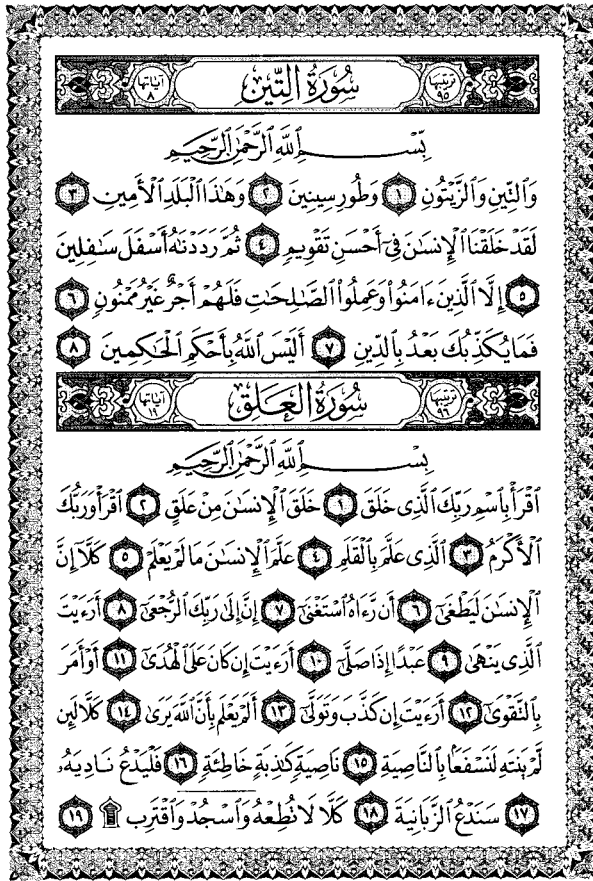 ترتيبها ٩٥ سُورَةُ التِّينِ آياتها ٨
بِسْمِ اللَّهِ الرَّحْمَٰنِ الرَّحِيمِ
وَالتِّينِ وَالزَّيْتُونِ ١ وَطُورِ سِينِينَ ٢ وَهَٰذَا الْبَلَدِ الْأَمِينِ ٣
لَقَدْ خَلَقْنَا الْإِنسَٰنَ فِىٓ أَحْسَنِ تَقْوِيمٍ ٤ ثُمَّ رَدَدْنَٰهُ أَسْفَلَ سَٰفِلِينَ
٥ إِلَّا الَّذِينَ ءَامَنُوا۟ وَعَمِلُوا۟ الصَّٰلِحَٰتِ فَلَهُمْ أَجْرٌ غَيْرُ مَمْنُونٍ ٦
فَمَا يُكَذِّبُكَ بَعْدُ بِالدِّينِ ٧ أَلَيْسَ اللَّهُ بِأَحْكَمِ الْحَٰكِمِينَ ٨
ترتيبها ٩٦ سُورَةُ الْعَلَقِ آياتها ١٩
بِسْمِ اللَّهِ الرَّحْمَٰنِ الرَّحِيمِ
اقْرَأْ بِاسْمِ رَبِّكَ الَّذِى خَلَقَ ١ خَلَقَ الْإِنسَٰنَ مِنْ عَلَقٍ ٢ اقْرَأْ وَرَبُّكَ
الْأَكْرَمُ ٣ الَّذِى عَلَّمَ بِالْقَلَمِ ٤ عَلَّمَ الْإِنسَٰنَ مَا لَمْ يَعْلَمْ ٥ كَلَّآ إِنَّ
الْإِنسَٰنَ لَيَطْغَىٰٓ ٦ أَن رَّءَاهُ اسْتَغْنَىٰٓ ٧ إِنَّ إِلَىٰ رَبِّكَ الرُّجْعَىٰٓ ٨ أَرَءَيْتَ
الَّذِى يَنْهَىٰ ٩ عَبْدًا إِذَا صَلَّىٰٓ ١٠ أَرَءَيْتَ إِن كَانَ عَلَى الْهُدَىٰٓ ١١ أَوْ أَمَرَ
بِالتَّقْوَىٰٓ ١٢ أَرَءَيْتَ إِن كَذَّبَ وَتَوَلَّىٰٓ ١٣ أَلَمْ يَعْلَم بِأَنَّ اللَّهَ يَرَىٰ ١٤ كَلَّا لَئِن
لَّمْ يَنتَهِ لَنَسْفَعًۢا بِالنَّاصِيَةِ ١٥ نَاصِيَةٍ كَٰذِبَةٍ خَاطِئَةٍ ١٦ فَلْيَدْعُ نَادِيَهُۥ
١٧ سَنَدْعُ الزَّبَانِيَةَ ١٨ كَلَّا لَا تُطِعْهُ وَاسْجُدْ وَاقْتَرِب ۩ ١٩